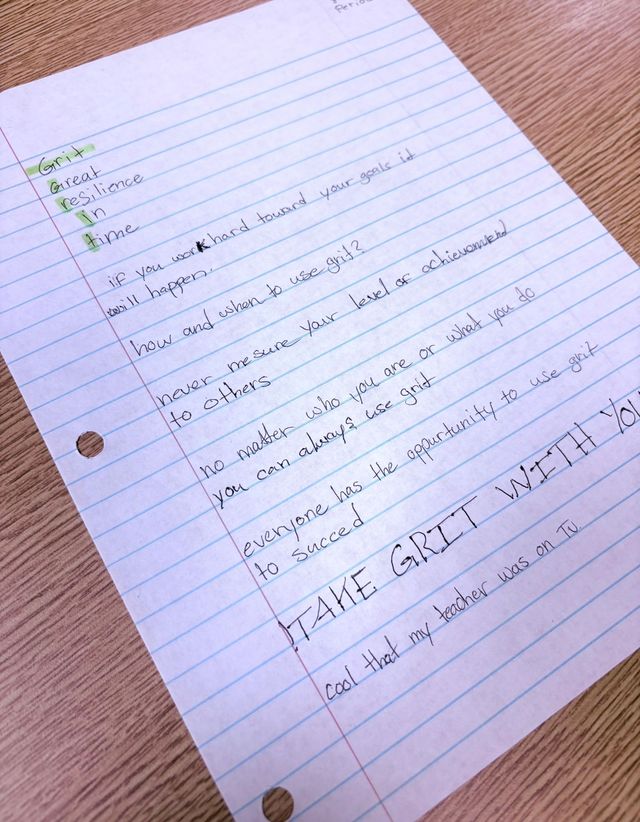 Perio
Grit
Great
resilience
In
time
if you work hard toward your goals it
will happen.
how and when to use grit?
never mesure your level or achievement
to others
no matter who you are or what you do
you can always use grit
everyone has the oppurtunity to use grit
to succed
TAKE GRIT WITH YOU
cool that my teacher was on TV.